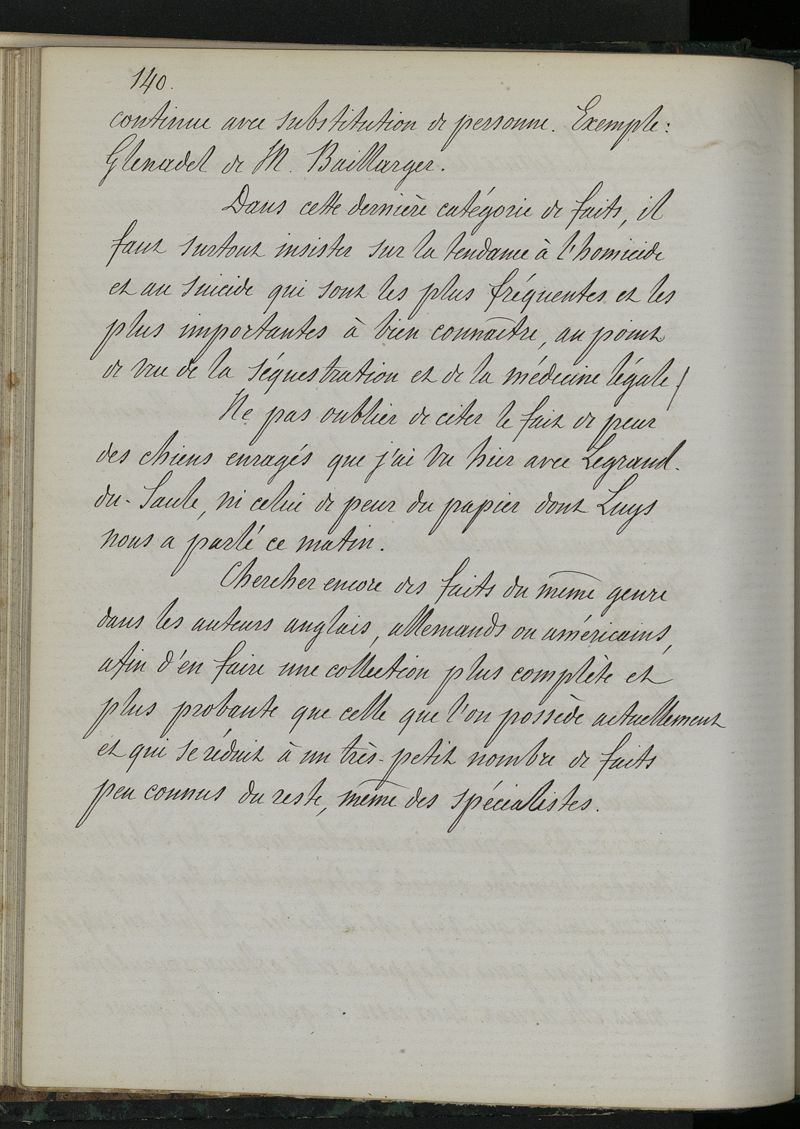 140.
continue avec substitution de personne. Exemple:
Glenadel de M. Baillarger.
Dans cette dernière catégorie de faits, il
faut surtout insister sur la tendance à l'homicide
et au suicide qui sont les plus fréquentes et les
plus importantes à bien connaître, au point
de vue de la séquestration et de la médecine légale!
Ne pas oublier de citer le fait de peur
des chiens enragés que j'ai vu hier avec Legrand-
du-Saule, ni celui de peur du papier dont Luys
nous a parlé ce matin.
Chercher encore des faits du même genre
dans les auteurs anglais, allemands ou américains,
afin d'en faire une collection plus complète et
plus probante que celle que l'on possède actuellement
et qui se réduit à un très-petit nombre de faits
peu connus du reste, même des spécialistes.